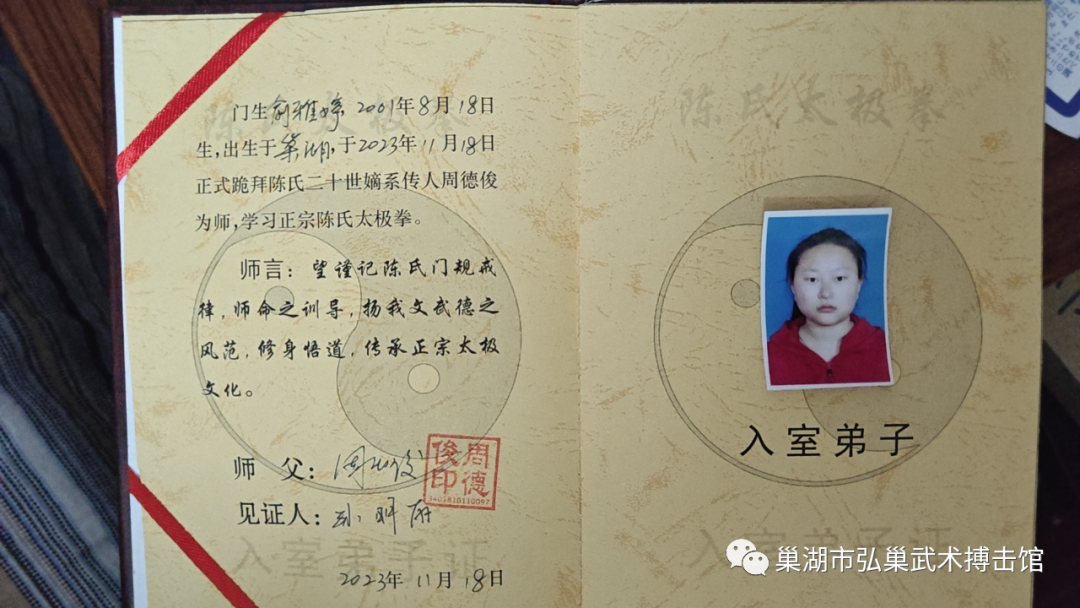 陈氏太极拳
门生俞雅婷 2001年8月18日
生,出生于巢湖,于2023年11月18日
正式跪拜陈氏二十世嫡系传人周德俊
为师,学习正宗陈氏太极拳。
师言：望谨记陈氏门规戒
律,师命之训导,扬我文武德之
风范,修身悟道,传承正宗太极
文化。
师 父：周德俊
周德俊印
见证人：
入室弟子证
2023年 11月 18日
陈氏太极拳
入室弟子
入室弟子证
巢湖市弘巢武术搏击馆